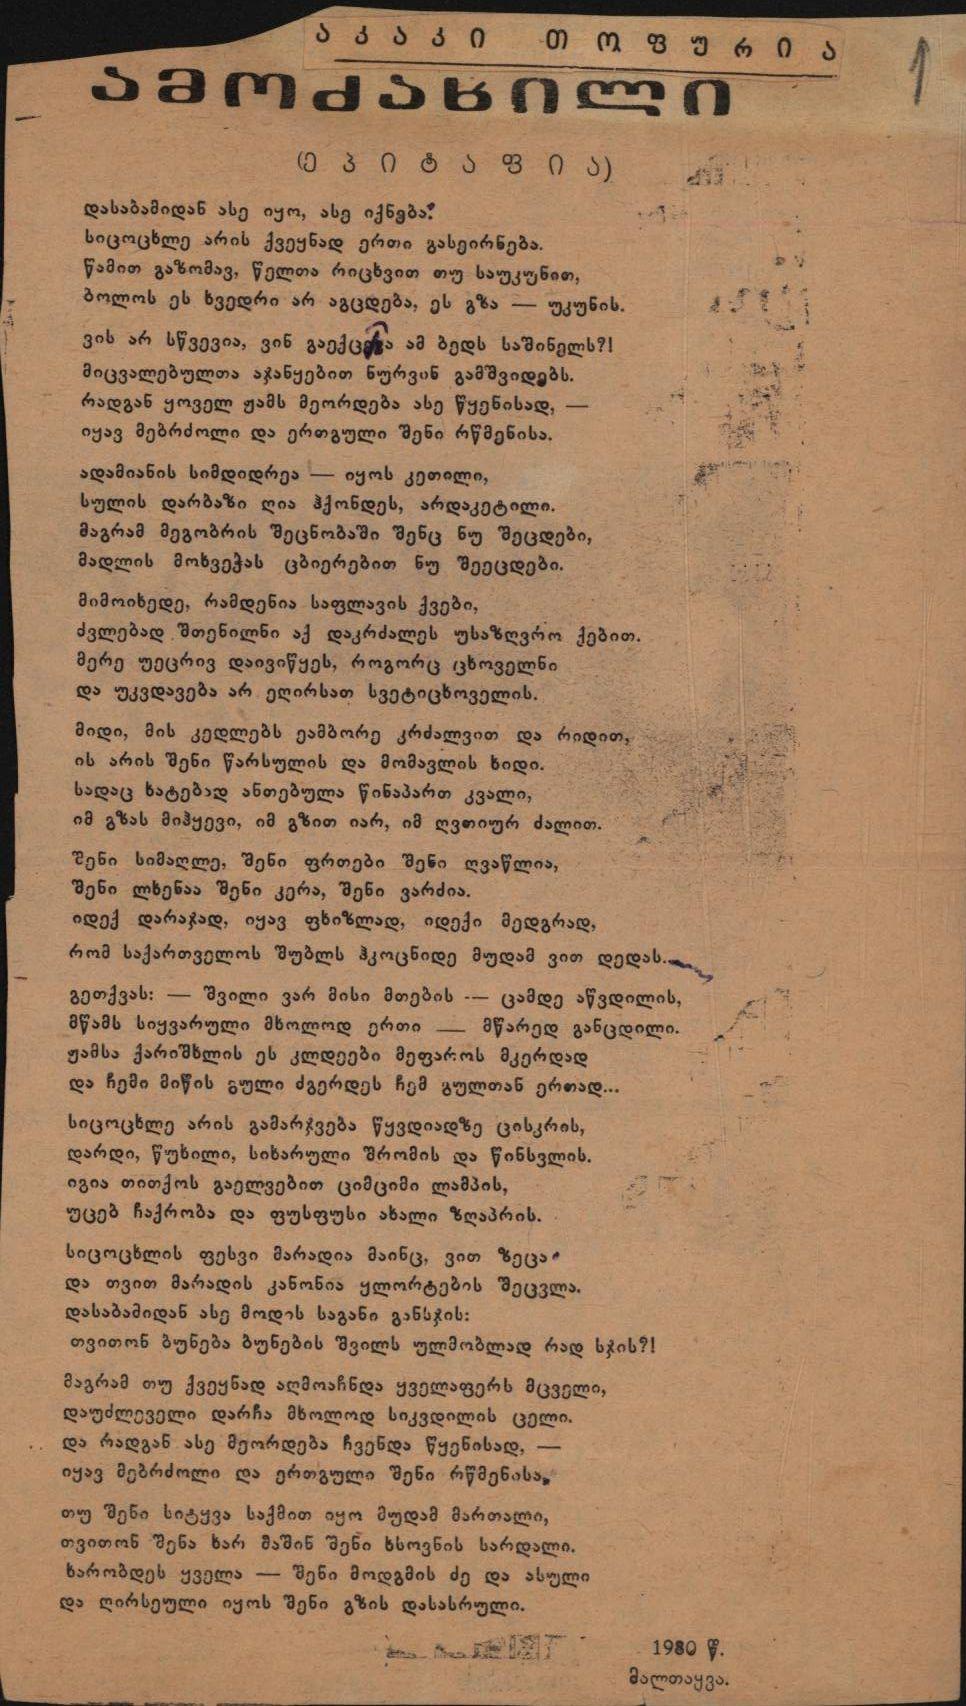 აკაკი თოფურია
1
ამოძახილი
(ეპიტაფია)
დასაბამიდან ასე იყო, ასე იქნება:
სიცოცხლე არის ქვეყნად ერთი გასეირნება.
წამით გაზომავ, წელთა რიცხვით თუ საუკუნით,
ბოლოს ეს ხვედრი არ აგცდება, ეს გზა — უკუნის.
ვის არ სწვევია, ვინ გაექცევა ამ ბედს საშინელს?!
მიცვალებულთა აჯანყებით ნურვინ გამშვიდებს.
რადგან ყოველ ჟამს მეორდება ასე წყენისად, —
იყავ მებრძოლი და ერთგული შენი რწმენისა.
ადამიანის სიმდიდრეა — იყოს კეთილი,
სულის დარბაზი ღია ჰქონდეს, არდაკეტილი.
მაგრამ მეგობრის შეცნობაში შენც ნუ შეცდები,
მადლის მოხვეჭას ცბიერებით ნუ შეეცდები.
მიმოიხედე, რამდენია საფლავის ქვები,
ძვლებად შთენილნი აქ დაკრძალეს უსაზღვრო ქებით.
მერე უეცრივ დაივიწყეს, როგორც ცხოველნი
და უკვდავება არ ეღირსათ სვეტიცხოველის.
მიდი, მის კედლებს ეამბორე კრძალვით და რიდით,
ის არის შენი წარსულის და მომავლის ხიდი.
სადაც ხატებად ანთებულა წინაპართ კვალი,
იმ გზას მიჰყევი, იმ გზით იარ, იმ ღვთიურ ძალით.
შენი სიმაღლე, შენი ფრთები შენი ღვაწლია,
შენი ლხენაა შენი კერა, შენი ვარძია.
იდექ დარაჯად, იყავ ფხიზლად, იდექი მედგრად,
რომ საქართველოს შუბლს ჰკოცნიდე მუდამ ვით დედას.
გეთქვას: — შვილი ვარ მისი მთების -— ცამდე აწვდილის,
მწამს სიყვარული მხოლოდ ერთი — მწარედ განცდილი.
ჟამსა ქარიშხლის ეს კლდეები მეფაროს მკერდად
და ჩემი მიწის გული ძგერდეს ჩემ გულთან ერთად...
სიცოცხლე არის გამარჯვება წყვდიადზე ცისკრის,
დარდი, წუხილი, სიხარული შრომის და წინსვლის.
იგია თითქოს გაელვებით ციმციმი ლამპის,
უცებ ჩაქრობა და ფუსფუსი ახალი ზღაპრის.
სიცოცხლის ფესვი მარადია მაინც, ვით ზეცა
და თვით მარადის კანონია ყლორტების შეცვლა.
დასაბამიდან ასე მოდის საგანი განსჯის:
თვითონ ბუნება ბუნების შვილს ულმობლად რად სჯის?!
მაგრამ თუ ქვეყნად აღმოაჩნდა ყველაფერს მცველი,
დაუძლეველი დარჩა მხოლოდ სიკვდილის ცელი.
და რადგან ასე მეორდება ჩვენდა წყენისად, —
იყავ მებრძოლი და ერთგული შენი რწმენისა.
თუ შენი სიტყვა საქმით იყო მუდამ მართალი,
თვითონ შენა ხარ მაშინ შენი ხსოვნის სარდალი.
ხარობდეს ყველა — შენი მოდგმის ძე და ასული
და ღირსეული იყოს შენი გზის დასასრული.
1980 წ.
მალთაყვა.